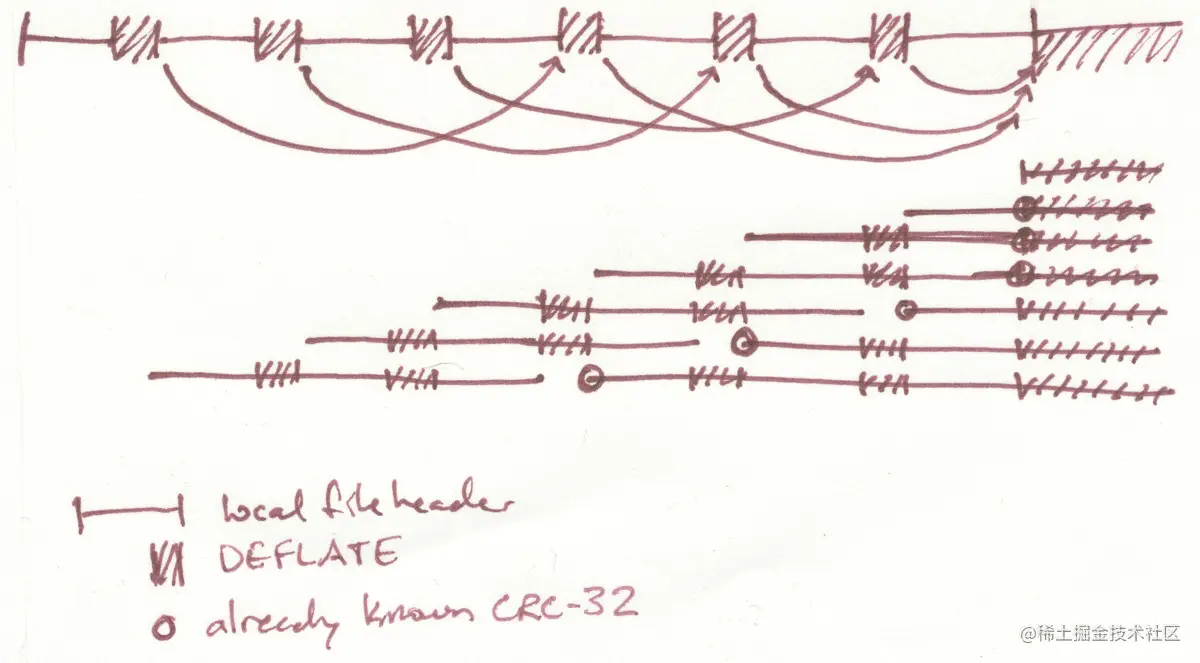 local file header
DEFLATE
already known CRC-32
@稀土掘金技术社区